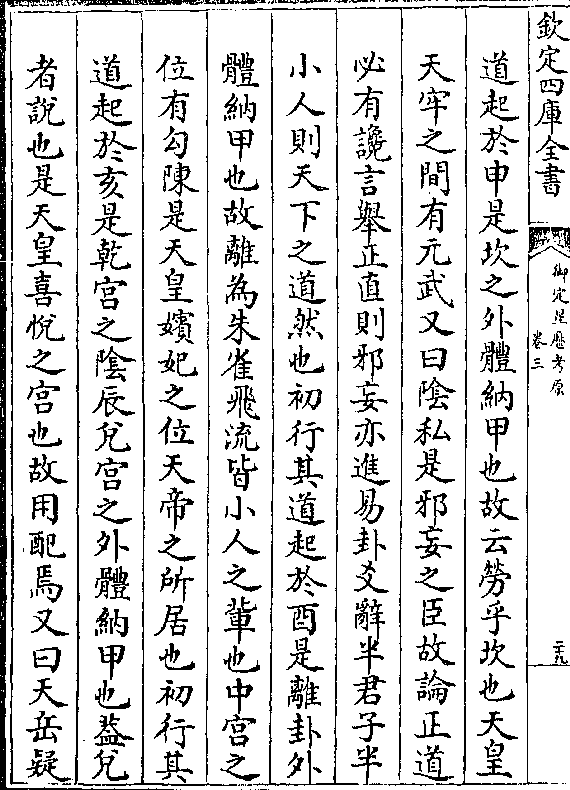 欽定四庫全書
御定星歷考原
卷三
二十九
道起於申是坎之外體納甲也故云勞乎坎也天皇
天牢之間有元武又曰陰私是邪妄之臣故論正道
必有讒言舉正直則邪妄亦進易卦爻辭半君子半
小人則天下之道然也初行其道起於酉是離卦外
體納甲也故離為朱雀飛流皆小人之輩也中宫之
位有勾陳是天皇嬪妃之位天帝之所居也初行其
道起於亥是乾宫之陰辰兌宫之外體納甲也葢兌
者說也是天皇喜悅之宫也故用配焉又曰天岳疑